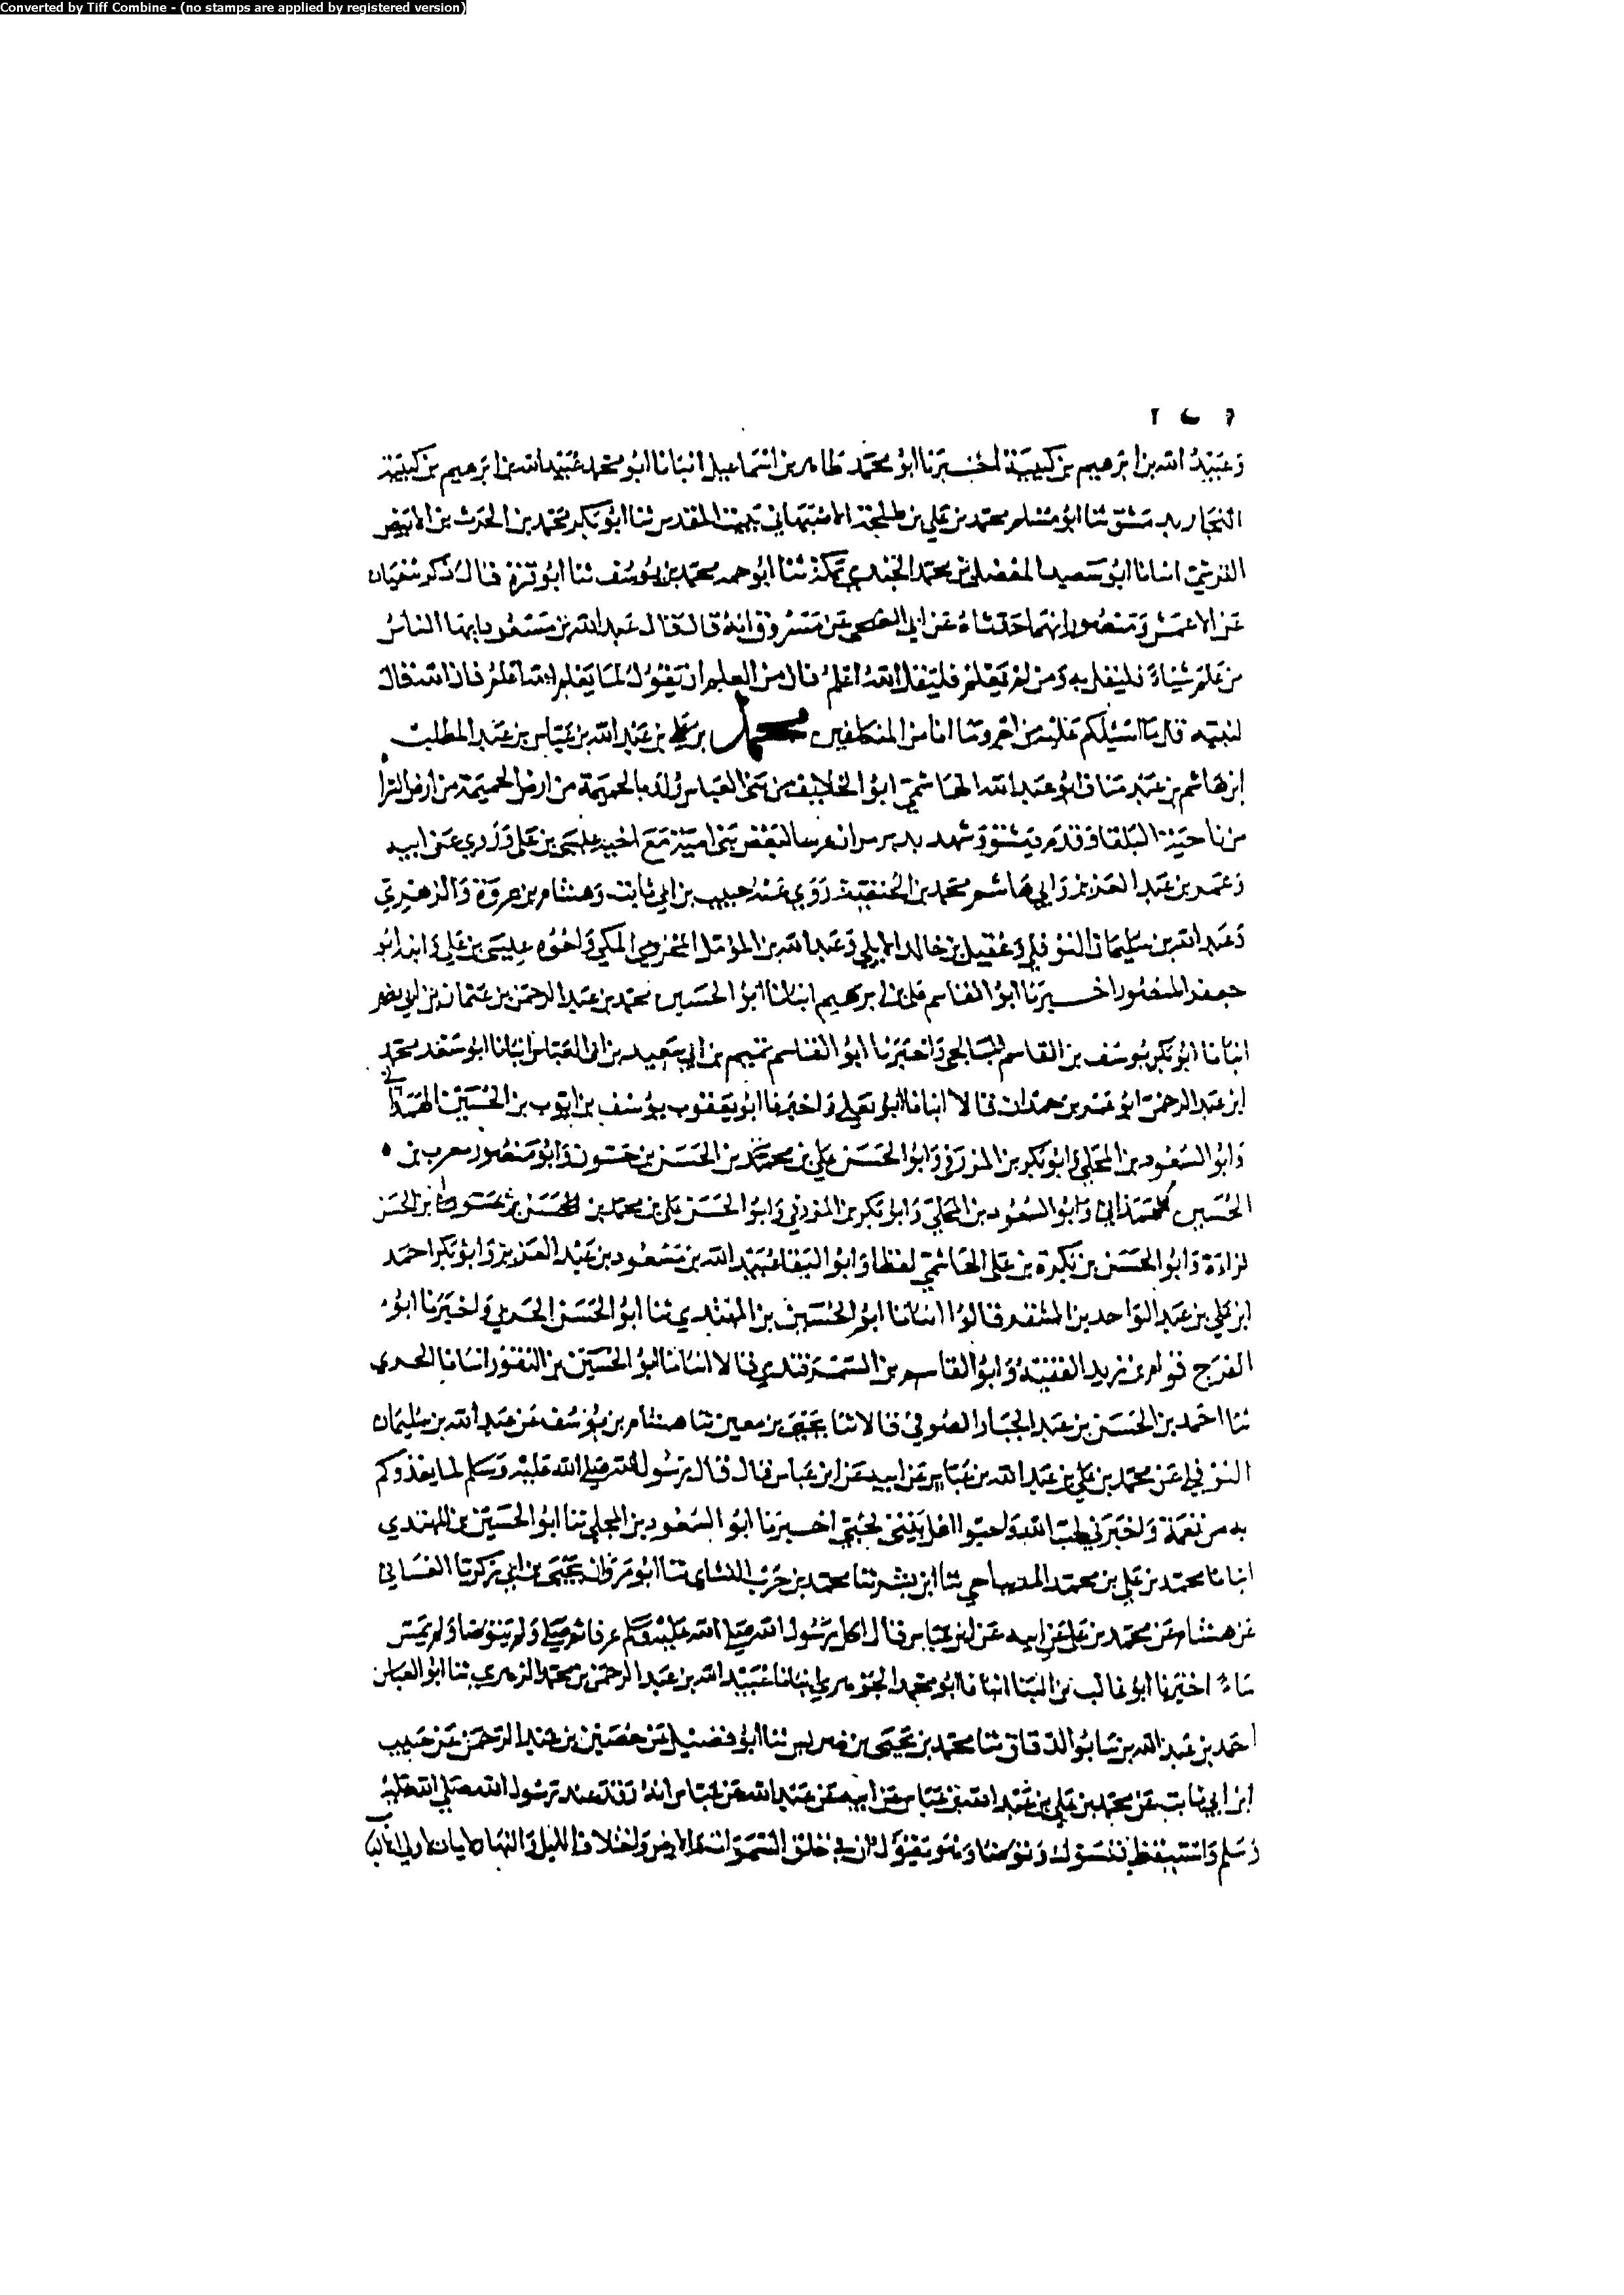 Converted by Tiff Combine - (no stamps are applied by registered version)
وعبيد الله بن ابرهيم بن كبيبة اخبرنا ابو محمد طاهر بن اسماعيل انبانا ابو محمد عبيد الله بن ابرهيم بن كبيبة
النجار بدمشق ثنا ابو مسلم محمد بن علي بن طلحة الاصبهاني ببيت المقدس ثنا ابو بكر محمد بن الحرث بن الابيض
القرشي انبانا ابو سعيد المفضل بن محمد الجندي بمكة ثنا ابو حمه محمد بن يوسف ثنا ابو قرة قال ذكر سفيان
عن الاعمش ومنصور انهما حدثاه عن ابي الضحى عن مسروق انه قال قال عبد الله بن مسعود يا يها الناس
من علم شياء فليقل به ومن لم يعلم فليقل الله اعلم قال من العلم ان يقول لما يعلم الله اعلم فان الله قال
لنبيه قل ما اسئلكم عليه من اجر وما انا من المتكلفين محمد بن علي بن عبد الله بن عباس بن عبد المطلب
ابن هاشم بن عبد مناف ابو عبد الله الهاشمي ابو الخلايف من بني العباس ولد بالحميمة من ارض الحميمة من ارض الشراه
من ناحية البلقا وقدم دمشق وشهد بعض بني امية مع اخيه عيسى بن علي وروي عن ابيه
وعمر بن عبد العزيز وابي هاشم محمد بن الحنفية روى عنه حبيب بن ابي ثابت وهشام بن عروة والزهري
وعبد الله بن سليمان النوفلي وعقيل بن خالد الايلي وعبد الله بن المؤمل المخزومي المكي واخوه عيسى بن علي وابنه ابو
جعفر المنصور اخبرنا ابو القاسم علي بن ابرهيم انبانا ابو الحسين محمد بن عبد الرحمن بن عثمان بن ابي نصر
انبانا ابو بكر يوسف بن القاسم الميانجي واخبرنا ابو القاسم تميم بن ابي سعيد بن ابي العباس انبانا ابو سعد محمد
ابن عبد الرحمن ابو عمرو بن حمدان قالا انبانا ابو يعلى واخبرنا ابو يعقوب يوسف بن ايوب بن الحسين الهمداني
وابو السعود بن المجلي وابو بكر بن المزرفي وابو الحسن علي بن محمد بن الحسن بن حسون وابو منصور بن
الحسين الهمذاني وابو السعود بن المجلي وابو بكر بن المزرفي وابو الحسن علي بن محمد بن الحسن بن الحسن
قراءة وابو الحسن بن بكرة بن علي الهاشمي لفظا وابو البقا عبيد الله بن مسعود بن عبد العزيز وابو بكر احمد
ابن علي بن عبد الواحد بن الاشقر قالوا انبانا ابو الحسين بن المهتدي ثنا ابو الحسن الحربي واخبرنا ابو
الفرج قوام بن زيد الفقيه وابو القاسم بن السمرقندي قالا انبانا ابو الحسين بن النقور انبانا الحربي
ثنا احمد بن الحسن بن عبد الجبار الصوفي قالا ثنا يحيى بن معين ثنا هشام بن يوسف عن عبد الله بن سليمان
النوفلي عن محمد بن علي بن عبد الله بن عباس عن ابيه عن ابن عباس قال قال رسول الله صلى الله عليه وسلم لما يغذوكم
به من نعمة اهل بيتي لحبي اخبرنا ابو السعود بن المجلي ثنا ابو الحسين بن المهتدي
انبانا محمد بن علي بن محمد ثنا ابن بشر ثنا محمد بن حرب النشاي ثنا ابو مروان يحيى بن ابي زكريا الغساني
عن هشام عن محمد بن علي عن ابيه عن ابن عباس قال اكل رسول الله صلى الله عليه وسلم عرقا ثم صلى ولم يتوضا ولم يمس
ماء اخبرنا ابو غالب بن البنا انبانا ابو محمد الجوهري انبانا عبيد الله بن عبد الرحمن بن محمد الزهري ثنا ابو العباس
احمد بن عبد الله بن سابور الدقاق ثنا محمد بن يحيى بن ضريس ثنا ابو فضيل عن حصين بن عبد الرحمن عن حبيب
ابن ابي ثابت عن محمد بن علي بن عبد الله بن عباس عن ابيه عن عبد الله عن عباس انه رقد عند رسول الله صلى الله عليه
وسلم واستيقظ فتسوك وتوضا وهو يقول ان في خلق السموات والارض واختلاف الليل والنهار لايات لاولي الالباب